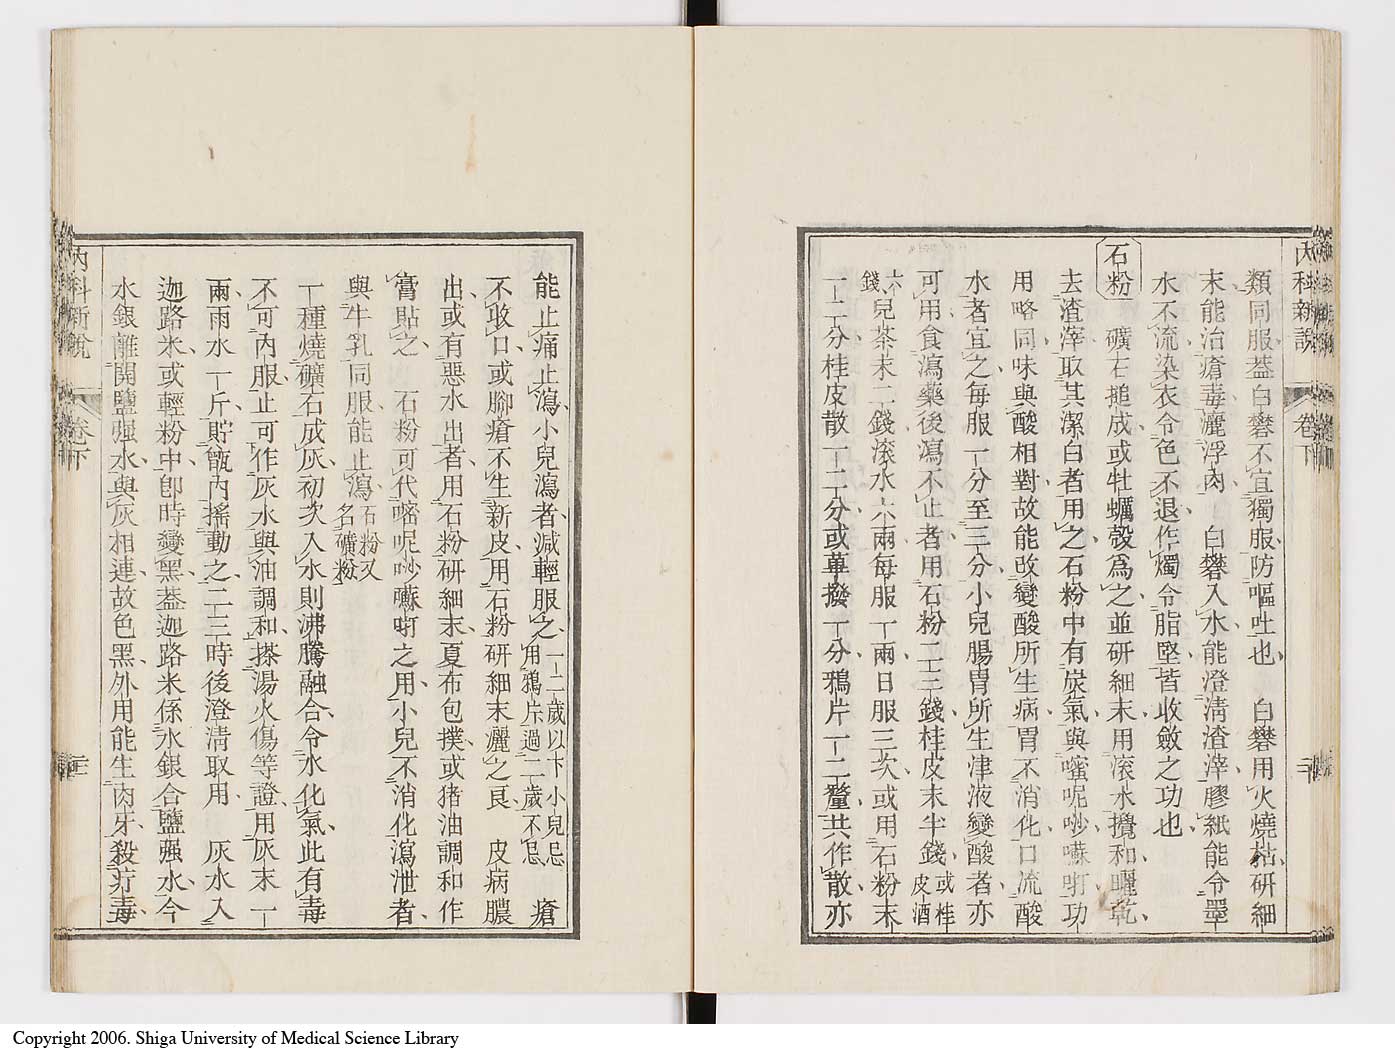 內科新說 卷下 三
類同服葢白礬不宜獨服防嘔吐也 白礬用火燒枯研細
末能治瘡毒灑浮肉 白礬入水能澄淸渣滓膠紙能令墨
水不流染衣令色不退作燭令脂堅皆收斂之功也
石粉 礦石搥成或牡蠣殼爲之並研細末用滾水攪和曬乾
去渣滓取其潔白者用之石粉中有炭氣與嘧呢唦嚹吀功
用略同味與酸相對故能改變酸所生病胃不消化口流酸
水者宜之每服一分至三分小兒腸胃所生津液變酸者亦
可用食瀉藥後瀉不止者用石粉二三錢桂皮末半錢或桂皮酒
六錢兒茶末二錢滾水六兩每服一兩日服三次或用石粉末
一二分桂皮散一二分或葷撥一分鴉片一二釐共作散亦
能止痛止瀉小兒瀉者減輕服之一二歲以下小兒忌用鴉片過二歲不忌 瘡
不收口或腳瘡不生新皮用石粉研細末灑之良 皮病膿
出或有惡水出者用石粉研細末夏布包撲或猪油調和作
膏貼之 石粉可代嘧呢唦嚹吀之用小兒不消化瀉泄者
與牛乳同服能止瀉石粉又名礦粉
一種燒礦石成灰初次入水則沸騰融合令水化氣此有毒
不可內服止可作灰水與油調和搽湯火傷等證用灰末一
兩雨水一斤貯甑內搖動之二三時後澄淸取用 灰水入
迦路米或輕粉中卽時變黑葢迦路米係水銀合鹽强水今
水銀離開鹽强水與灰相連故色黑外用能生肉牙殺疔毒
內科新說 卷下 三
Copyright 2006. Shiga University of Medical Science Library